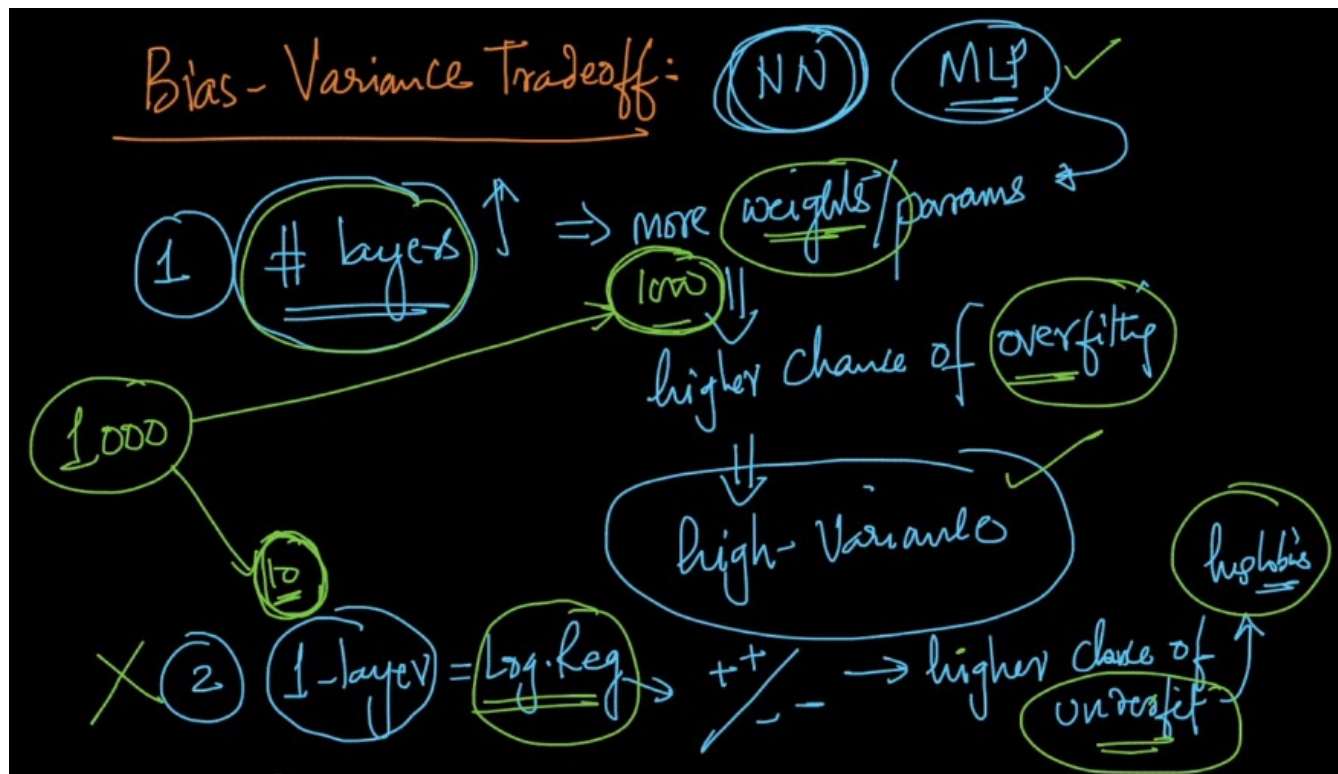 Bias-Variance Tradeoff: NN MLP
1 # layers ⇒ more weights/params
1000
higher chance of overfitting
1000
high-Variance
10
high bias
2 1-layer = Log.Reg → ++ / -- → higher chance of
underfit